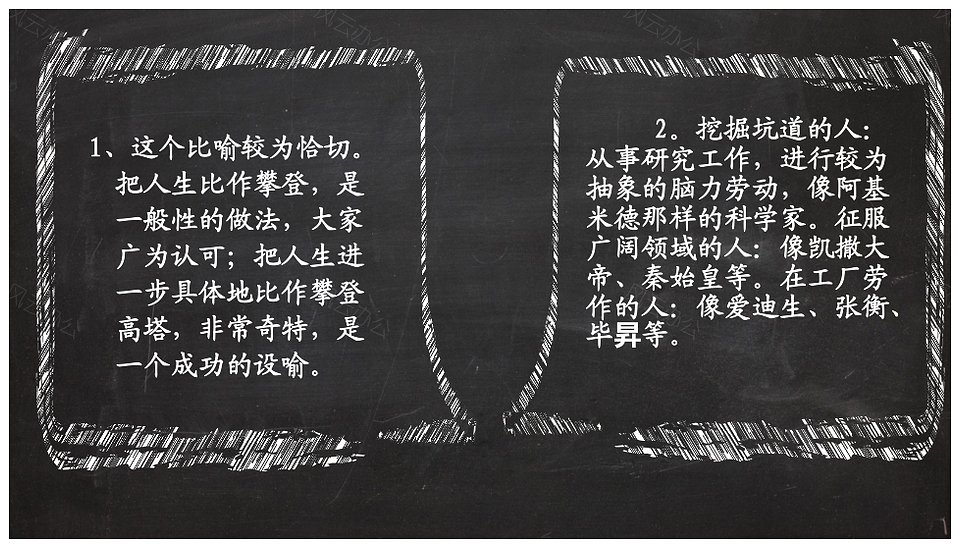 1、这个比喻较为恰切。
把人生比作攀登，是
一般性的做法，大家
广为认可；把人生进
一步具体地比作攀登
高塔，非常奇特，是
一个成功的设喻。
2。挖掘坑道的人：
从事研究工作，进行较为
抽象的脑力劳动，像阿基
米德那样的科学家。征服
广阔领域的人：像凯撒大
帝、秦始皇等。在工厂劳
作的人：像爱迪生、张衡、
毕昇等。